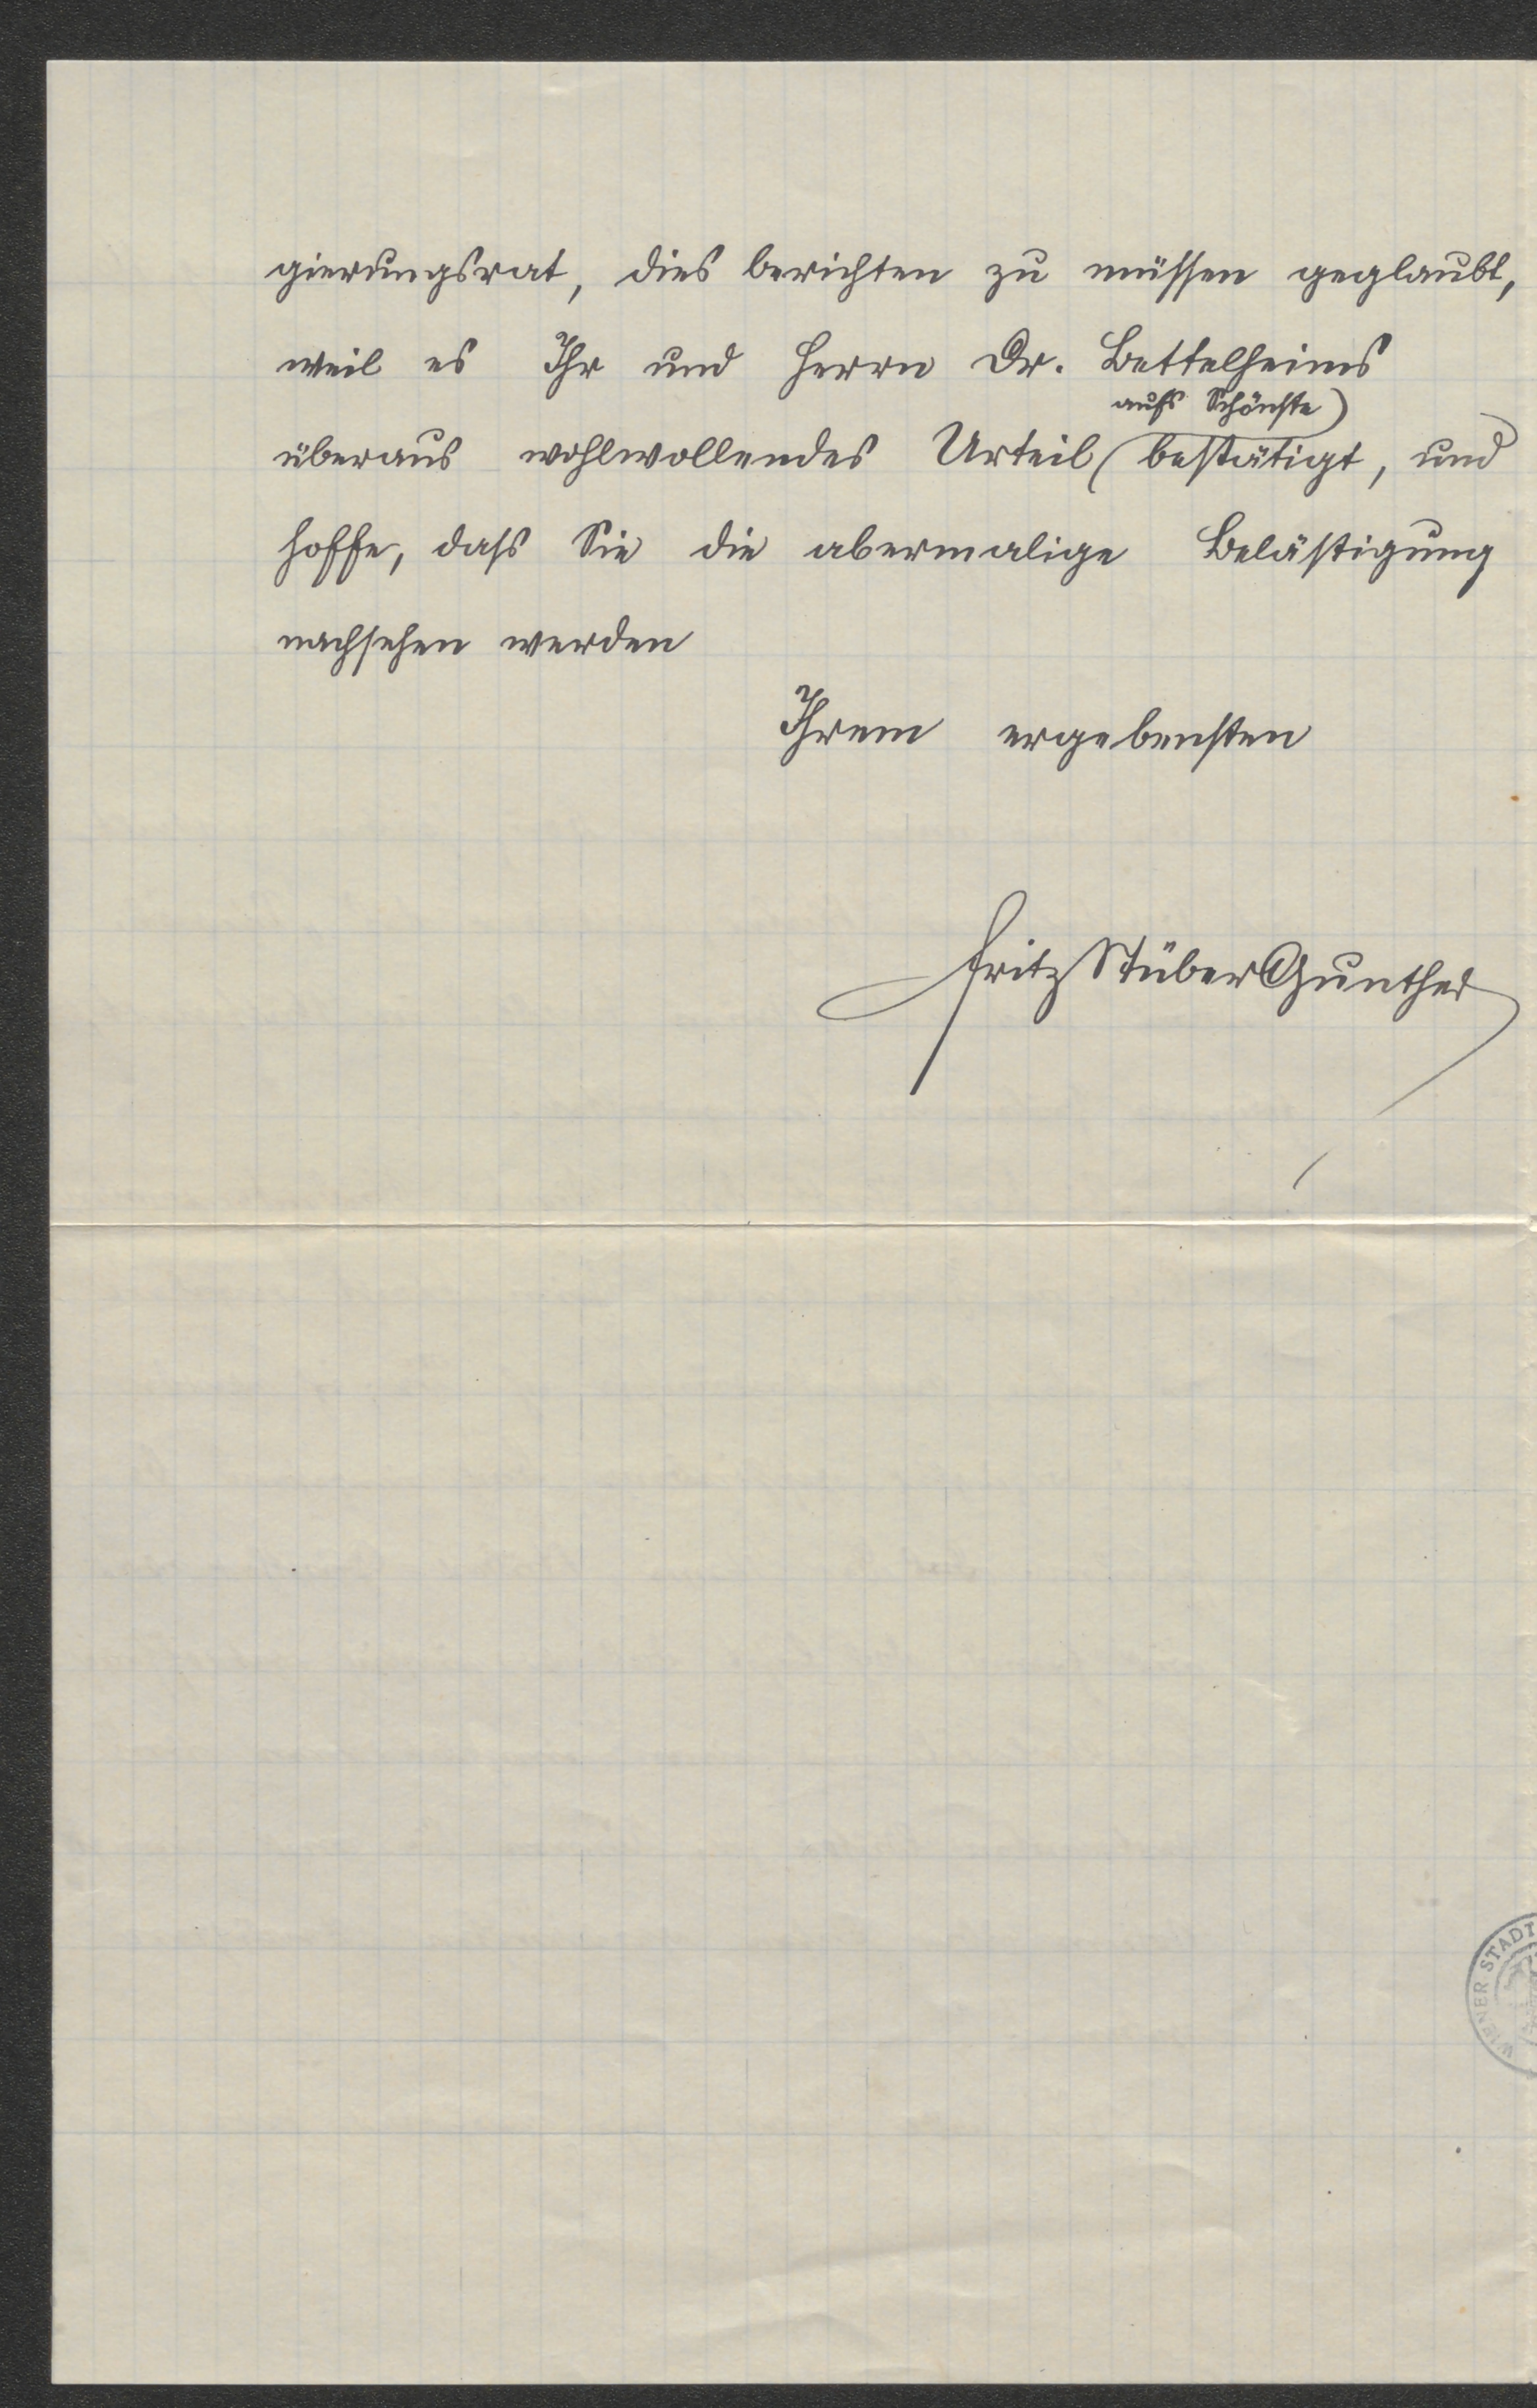 gierungsrat, dies berichten zu müssen geglaubt,
weil es Ihr und Herrn Dr. Bettelheims
aufs Schönste
überaus wohlwollendes Urteil bestätigt, und
hoffe, dass Sie die abermalige Belästigung
nachsehen werden
Ihrem ergebensten
Fritz Stüber Gunther
WIENER STADT